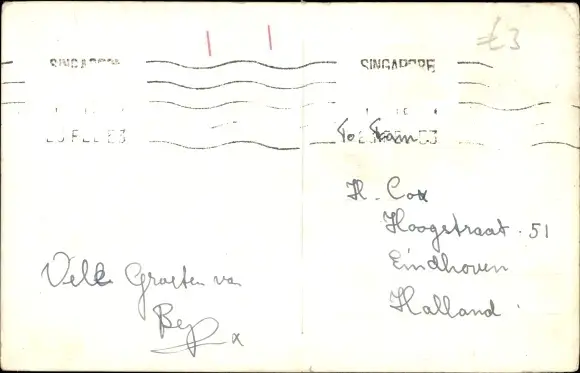 £3
SINGAPORE
SINGAPORE
FEB 63
To Fam
H. Cox
Hoogstraat. 51
Eindhoven
Holland.
Vele Groeten van
Bep
x